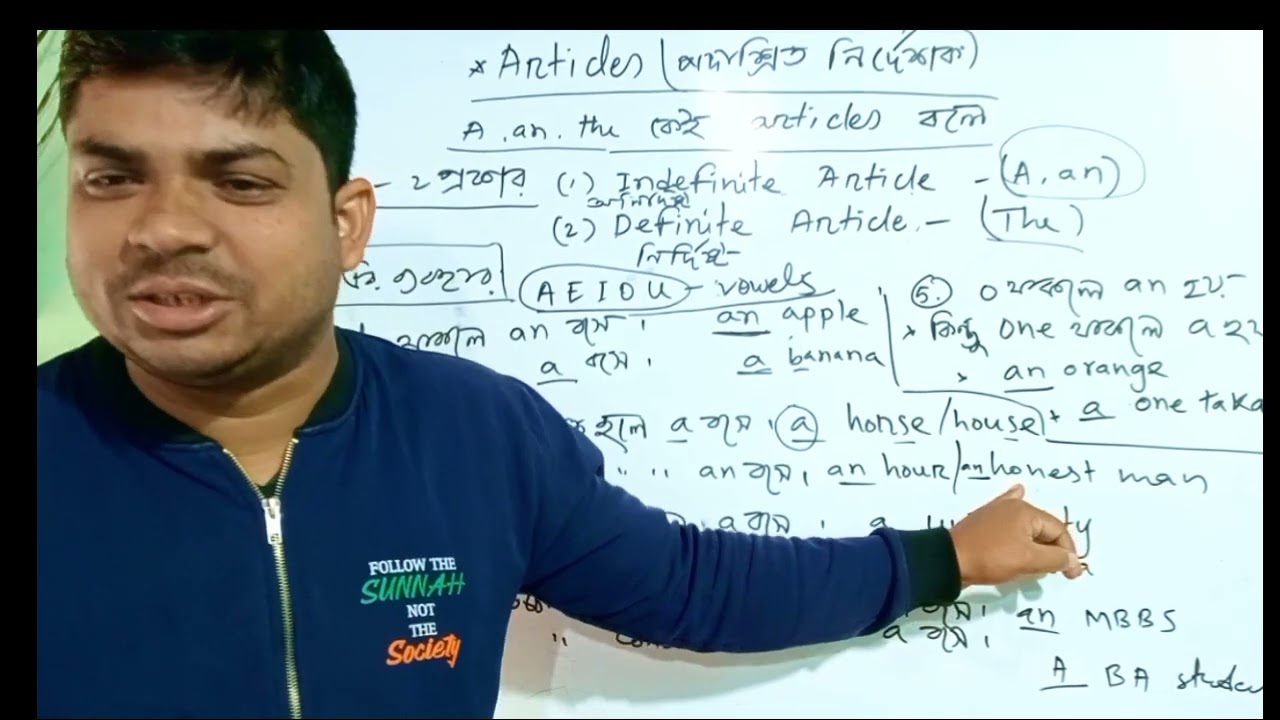 * Articles (পদাশ্রিত নির্দেশক)
A, an, the কেই articles বলে
- ২ প্রকার (1) Indefinite Article - (A, an)
অনির্দিষ্ট
(2) Definite Article - (The)
নির্দিষ্ট
AEIOU - vowels
থাকলে an বসে। an apple
a বসে। a banana
5. O থাকলে an হয়
* কিন্তু one থাকলে a হয়
> an orange
* a one taka
হলে a বসে। a horse/house
" " an বসে, an hour/an honest man
a বসে। a
বসে। an MBBS
" a বসে।
A BA
FOLLOW THE
SUNNAH
NOT
THE
Society